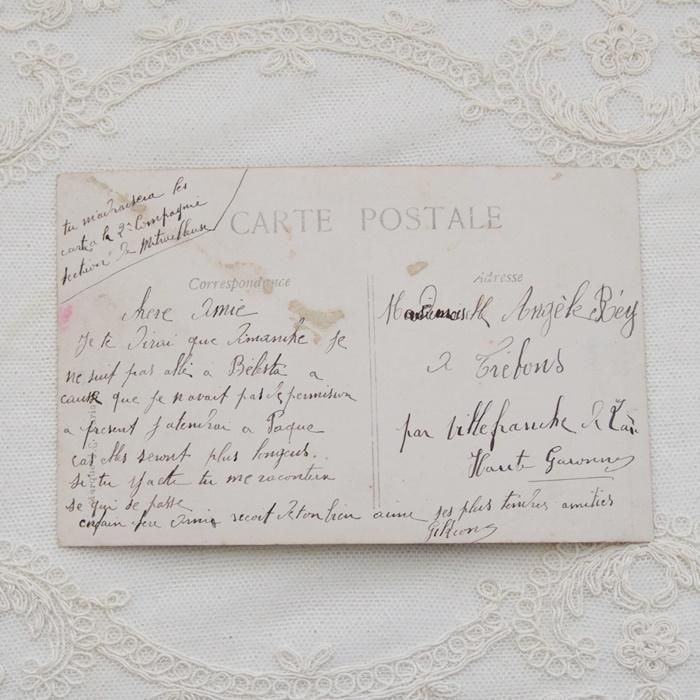 tu m'adraisera les
carte a la 2e Compagnie
section de Mitrailleuse
CARTE POSTALE
Correspondance
Adresse
chere Amie
Je te dirai que Dimanche je
ne suit pas allé a Bélesta a
cause que je navait pas de permision
a present j atendrai a Paque
cas elles seront plus longues.
si tu y acte tu me racontera
se qui se passe
enfain chere Amie recoit de ton bien aimé ses plus tendres amitiés
Mademoiselle Angèle Réy
a Trébons
par Villefranche de Lau
Haute Garonne